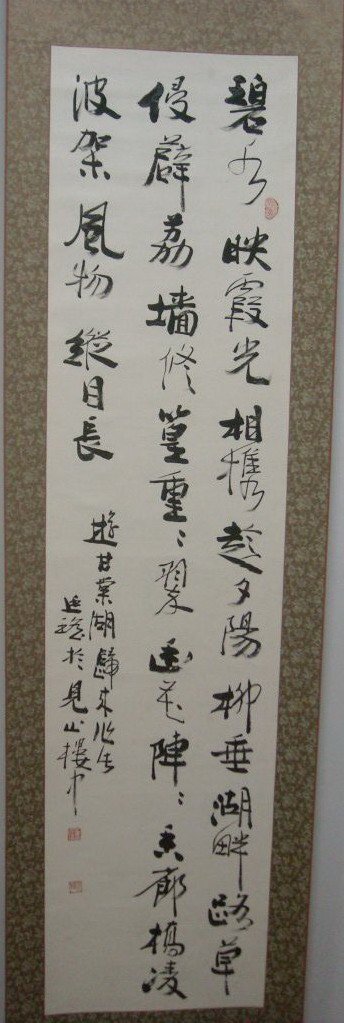 碧水映霞光相攜趁夕陽柳垂湖畔路草
侵薜荔墻修篁重重翠幽花陣陣香廊橋凌
波架風物縱目長
遊甘棠湖歸來作
於見山樓中